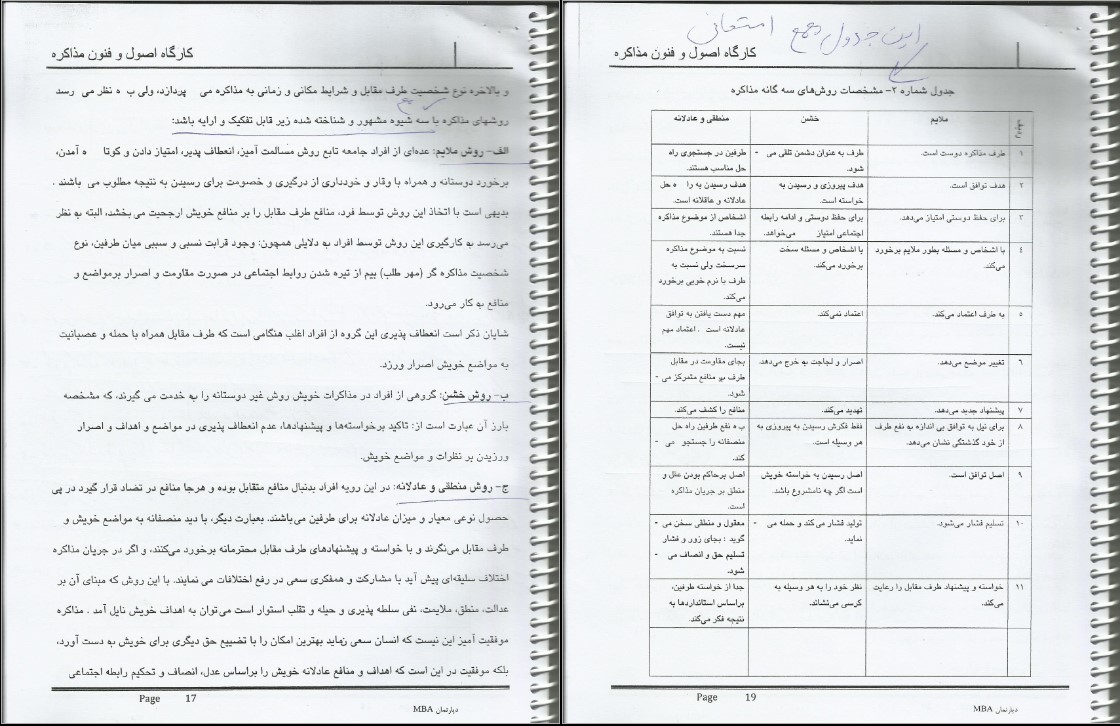 کارگاه اصول و فنون مذاکره
و بالاخره نوع شخصیت طرف مقابل و شرایط مکانی و زمانی به مذاکره می پردازد، ولی ب ه نظر می رسد
روشهای مذاکره با سه شیوه مشهور و شناخته شده زیر قابل تفکیک و ارایه باشد:
الف- روش ملایم: عده‌ای از افراد جامعه تابع روش مسالمت آمیز، انعطاف پذیر، امتیاز دادن و کوتا ه آمدن،
برخورد دوستانه و همراه با وقار و خودداری از درگیری و خصومت برای رسیدن به نتیجه مطلوب می باشند .
بدیهی است با اتخاذ این روش توسط فرد، منافع طرف مقابل را بر منافع خویش ارجحیت می بخشد، البته به نظر
می‌رسد به کارگیری این روش توسط افراد به دلایلی همچون: وجود قرابت نسبی و سببی میان طرفین، نوع
شخصیت مذاکره گر (مهر طلب) بیم از تیره شدن روابط اجتماعی در صورت مقاومت و اصرار برمواضع و
منافع به کار می‌رود.
شایان ذکر است انعطاف پذیری این گروه از افراد اغلب هنگامی است که طرف مقابل همراه با حمله و عصبانیت
به مواضع خویش اصرار ورزد.
ب- روش خشن: گروهی از افراد در مذاکرات خویش روش غیر دوستانه را به خدمت می گیرند، که مشخصه
بارز آن عبارت است از: تاکید برخواسته‌ها و پیشنهادها، عدم انعطاف پذیری در مواضع و اهداف و اصرار
ورزیدن بر نظرات و مواضع خویش.
ج- روش منطقی و عادلانه: در این رویه افراد بدنبال منافع متقابل بوده و هرجا منافع در تضاد قرار گیرد در پی
حصول نوعی معیار و میزان عادلانه برای طرفین می‌باشند. بعبارت دیگر، با دید منصفانه به مواضع خویش و
طرف مقابل می‌نگرند و با خواسته و پیشنهادهای طرف مقابل محترمانه برخورد می‌کنند، و اگر در جریان مذاکره
اختلاف سلیقه‌ای پیش آید با مشارکت و همفکری سعی در رفع اختلافات می نمایند. با این روش که مبنای آن بر
عدالت، منطق، ملایمت، نفی سلطه پذیری و حیله و تقلب استوار است می‌توان به اهداف خویش نایل آمد . مذاکره
موفقیت آمیز این نیست که انسان سعی نماید بهترین امکان را با تضییع حق دیگری برای خویش به دست آورد،
بلکه موفقیت در این است که اهداف و منافع عادلانه خویش را براساس عدل، انصاف و تحکیم رابطه اجتماعی
Page 17
دپارتمان MBA
این جدول مهم امتحانی
کارگاه اصول و فنون مذاکره
جدول شماره ۲- مشخصات روش‌های سه گانه مذاکره
ردیف ملایم خشن منطقی و عادلانه
۱ طرف مذاکره دوست است. طرف به عنوان دشمن تلقی می - طرفین در جستجوی راه
شود. حل مناسب هستند.
۲ هدف توافق است. هدف پیروزی و رسیدن به هدف رسیدن به را ه حل
خواسته است. عادلانه و عاقلانه است.
۳ برای حفظ دوستی امتیاز می‌دهد. برای حفظ دوستی و ادامه رابطه اشخاص از موضوع مذاکره
اجتماعی امتیاز می‌خواهد. جدا هستند.
۴ با اشخاص و مسئله بطور ملایم برخورد با اشخاص و مسئله سخت نسبت به موضوع مذاکره
می‌کند. برخورد می‌کند. سرسخت ولی نسبت به
طرف با نرم خویی برخورد
می‌کند.
۵ به طرف اعتماد می‌کند. اعتماد نمی‌کند. مهم دست یافتن به توافق
عادلانه است . اعتماد مهم
نیست.
۶ تغییر موضع می‌دهد. اصرار و لجاجت به خرج می‌دهد. بجای مقاومت در مقابل
طرف به منافع متمرکز می -
شود.
۷ پیشنهاد جدید می‌دهد. تهدید می‌کند. منافع را کشف می‌کند.
۸ برای نیل به توافق بی اندازه به نفع طرف فقط فکرش رسیدن به پیروزی به ب ه نفع طرفین راه حل
از خود گذشتگی نشان می‌دهد. هر وسیله است. منصفانه را جستجو می -
کند.
۹ اصل توافق است. اصل رسیدن به خواسته خویش اصل برحاکم بودن عقل و
است اگر چه نامشروع باشد. منطق بر جریان مذاکره
است.
۱۰ تسلیم فشار می‌شود. تولید فشار می‌کند و حمله می - معقول و منطقی سخن می -
نماید. گوید ؛ بجای زور و فشار
تسلیم حق و انصاف می -
شود.
۱۱ خواسته و پیشنهاد طرف مقابل را رعایت نظر خود را به هر وسیله به جدا از خواسته طرفین،
می‌کند. کرسی می‌نشاند. براساس استانداردها به
نتیجه فکر می‌کند.
Page 19
دپارتمان MBA